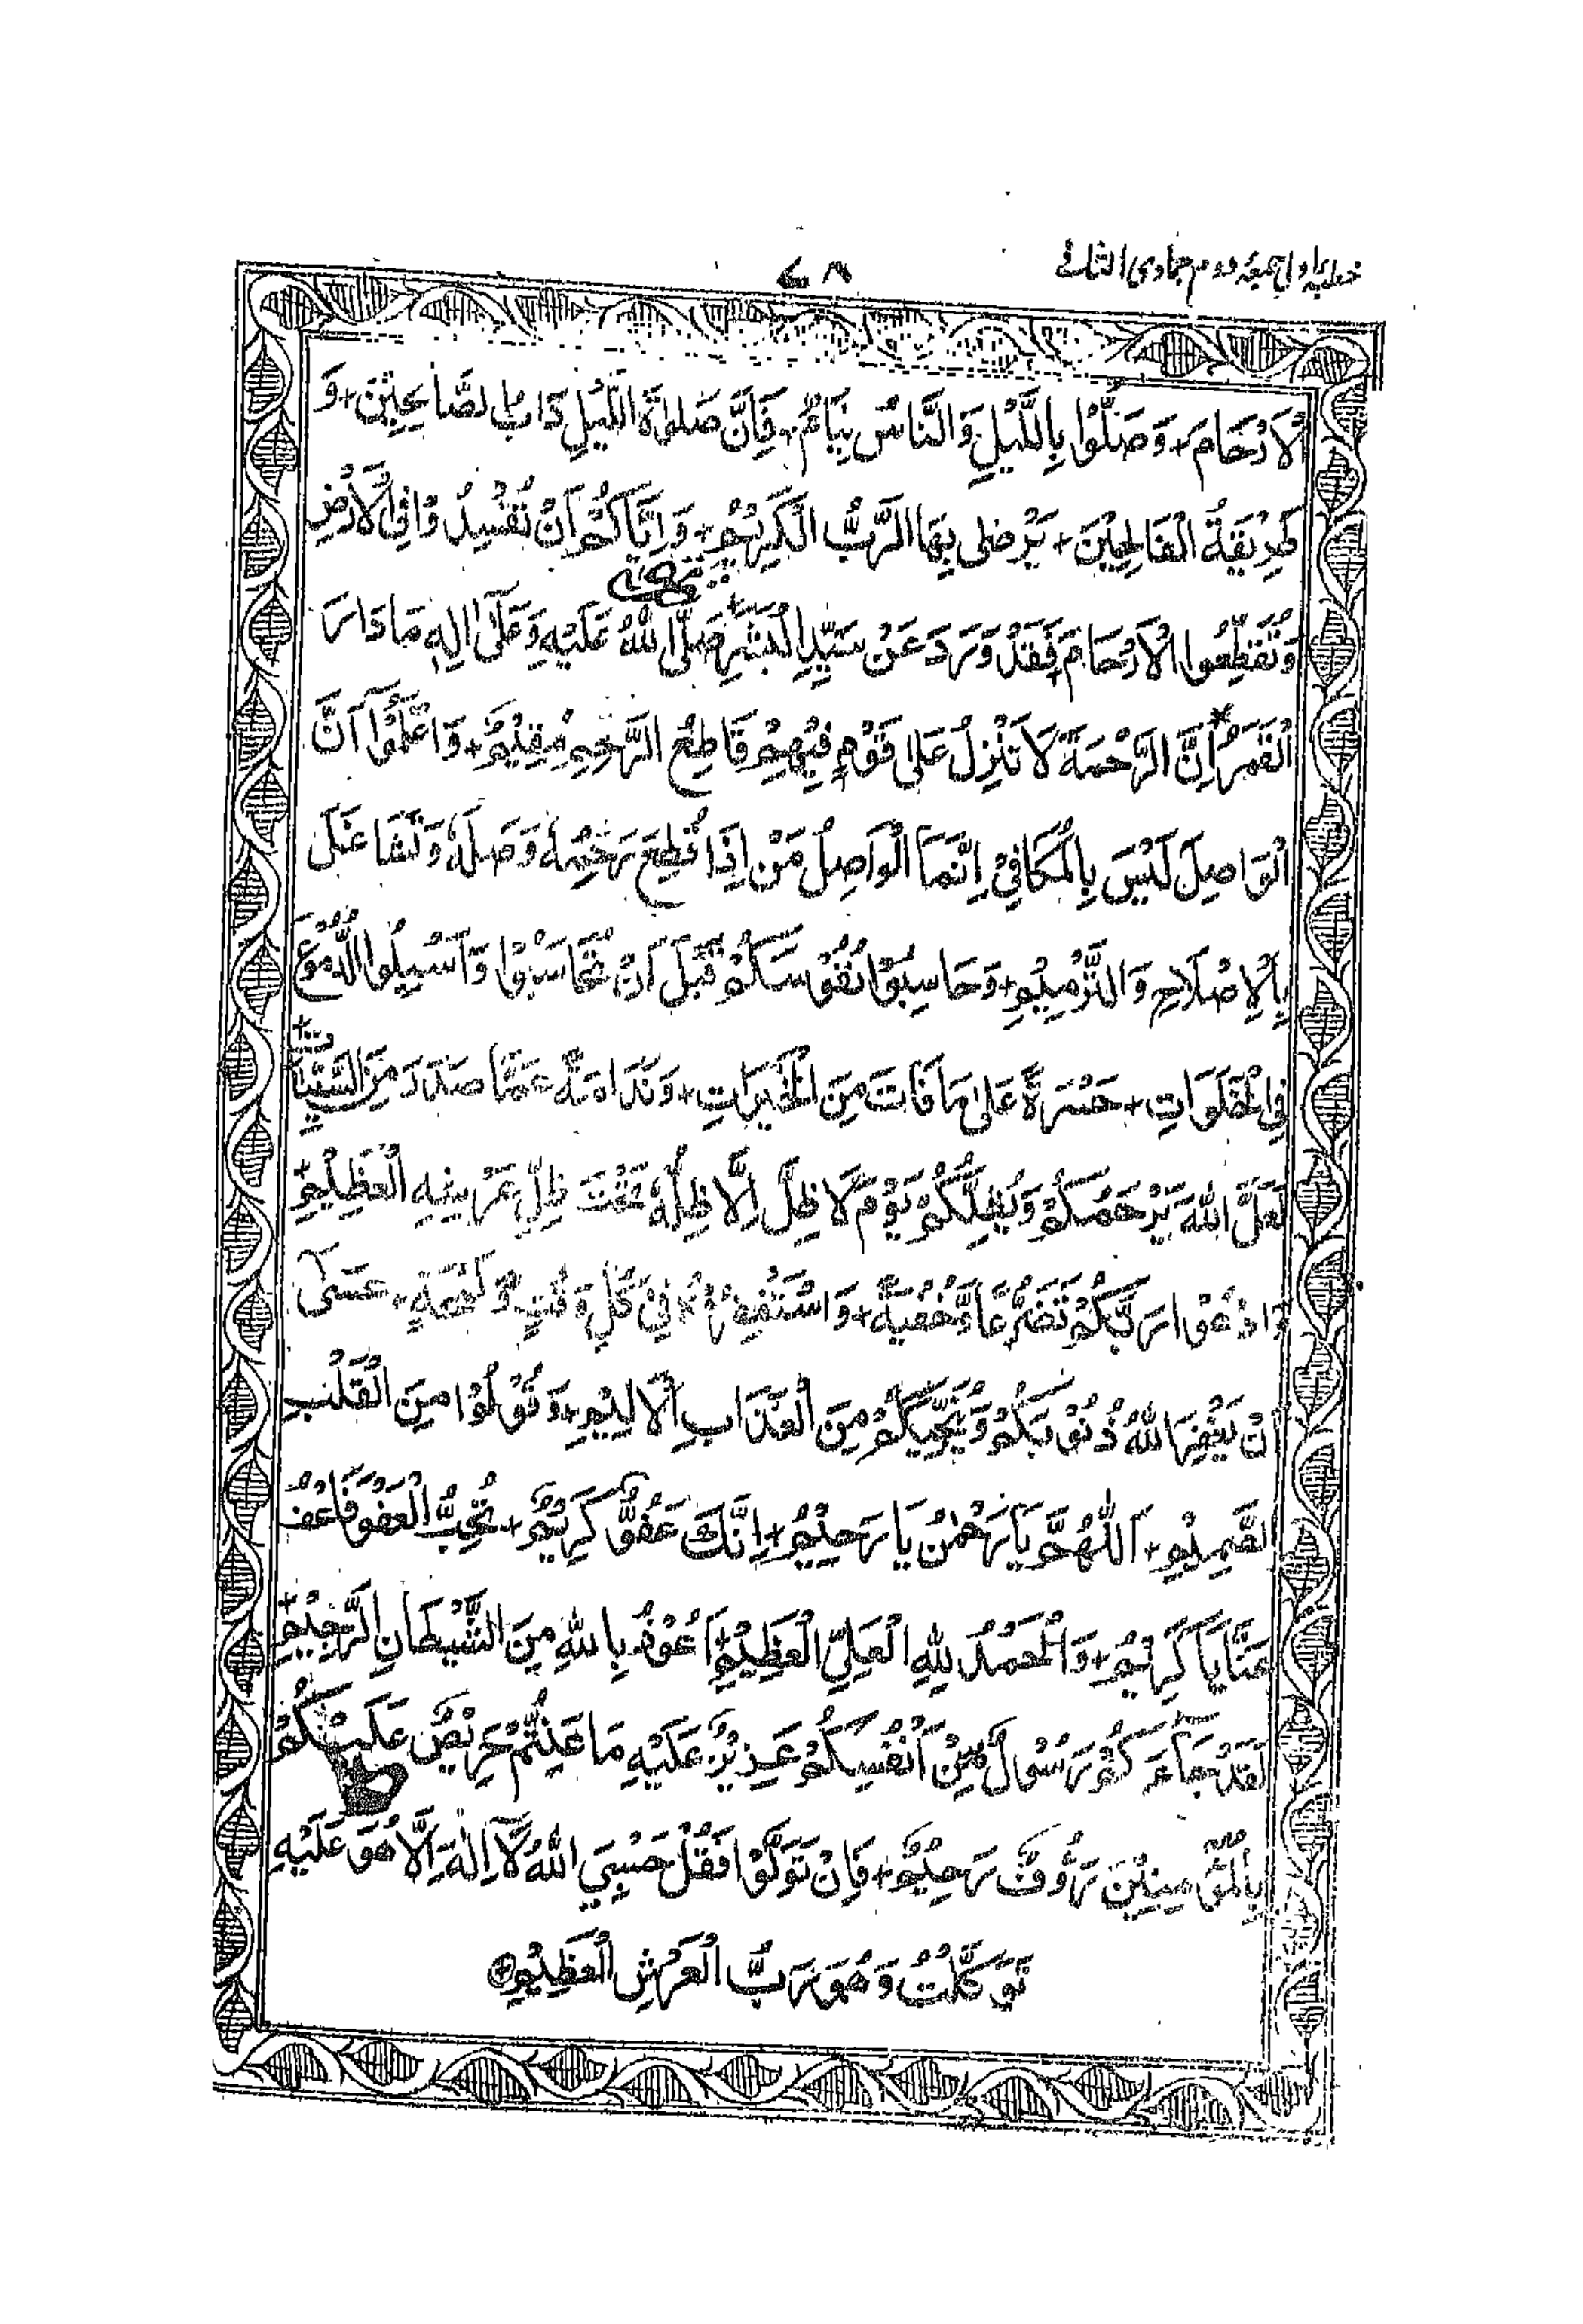 خطبۂ اولیٰ جمعۂ دوم جمادی الثانی
٧٨
الْاَرْحَامَ + وَصَلُّوْا بِاللَّيْلِ وَالنَّاسُ نِيَامٌ + فَاِنَّ صَلٰوةَ اللَّيْلِ دَابُ الصَّالِحِيْنَ + وَ
طَرِيْقَةُ الْفَالِحِيْنَ + يَرْضٰى بِهَا الرَّبُّ الْكَرِيْمُ + وَاِيَّاكُمْ اَنْ تُفْسِدُوْا فِى الْاَرْضِ
وَتُقَطِّعُوا الْاَرْحَامَ + فَقَدْ وَرَدَ عَنْ سَيِّدِ الْبَشَرِ + صَلَّى اللّٰهُ عَلَيْهِ وَعَلٰٓى اٰلِهٖ مَا دَارَ
الْقَمَرُ * اِنَّ الرَّحْمَةَ لَا تَنْزِلُ عَلٰى قَوْمٍ فِيْهِمْ قَاطِعُ الرَّحِمِ مُقِيْمٌ + وَاعْلَمُوْٓا اَنَّ
الْوَاصِلَ لَيْسَ بِالْمُكَافِئِ اِنَّمَا الْوَاصِلُ مَنْ اِذَا قُطِعَ رَحِمُهٗ وَصَلَهٗ وَتَفَاعَلَ
بِالْاِصْلَاحِ وَالتَّرْمِيْمِ + وَحَاسِبُوْا نُفُوْسَكُمْ قَبْلَ اَنْ تُحَاسَبُوْا وَاَسِيْلُوا الدُّمُوْعَ
فِى الْخَلَوَاتِ + حَسْرَةً عَلٰى مَا فَاتَ مِنَ الْخَيْرَاتِ + وَنَدَامَةً عَمَّا صَدَرَ مِنَ السَّيِّئَاتِ +
لَعَلَّ اللّٰهَ يَرْحَمُكُمْ وَيُظِلُّكُمْ يَوْمَ لَا ظِلَّ اِلَّا ظِلُّهٗ تَحْتَ ظِلِّ عَرْشِهِ الْعَظِيْمِ +
وَادْعُوْا رَبَّكُمْ تَضَرُّعًا وَّخُفْيَةً + وَاسْتَغْفِرُوْهُ فِيْ كُلِّ وَقْتٍ وَّلَمْحَةٍ + عَسٰٓى
اَنْ يَّغْفِرَ اللّٰهُ ذُنُوْبَكُمْ وَيُنَجِّيَكُمْ مِنَ الْعَذَابِ الْاَلِيْمِ + وَقُوْلُوْا مِنَ الْقَلْبِ
الصَّمِيْمِ + اَللّٰهُمَّ يَا رَحْمٰنُ يَا رَحِيْمُ + اِنَّكَ عَفُوٌّ كَرِيْمٌ + تُحِبُّ الْعَفْوَ فَاعْفُ
عَنَّا يَا كَرِيْمُ + وَالْحَمْدُ لِلّٰهِ الْعَلِيِّ الْعَظِيْمِ + اَعُوْذُ بِاللّٰهِ مِنَ الشَّيْطَانِ الرَّجِيْمِ +
لَقَدْ جَآءَكُمْ رَسُوْلٌ مِّنْ اَنْفُسِكُمْ عَزِيْزٌ عَلَيْهِ مَا عَنِتُّمْ حَرِيْصٌ عَلَيْكُمْ
بِالْمُؤْمِنِيْنَ رَءُوْفٌ رَحِيْمٌ + فَاِنْ تَوَلَّوْا فَقُلْ حَسْبِيَ اللّٰهُ لَآ اِلٰهَ اِلَّا هُوَ عَلَيْهِ
تَوَكَّلْتُ وَهُوَ رَبُّ الْعَرْشِ الْعَظِيْمِ